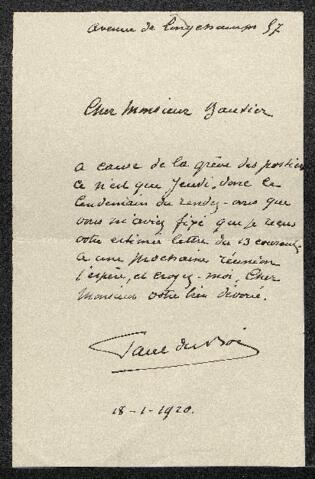 Avenue de Longchamps 57
Cher Monsieur Bautier
A cause de la grève des postiers
ce n'est que Jeudi, donc le
lendemain du rendez-vous que
vous m'aviez fixé que je reçus
votre estimée lettre du 13 courant.
A une prochaine réunion
j'espère, et croyez-moi, Cher
Monsieur votre bien dévoué.
Paul du Bois
18-1-1920.